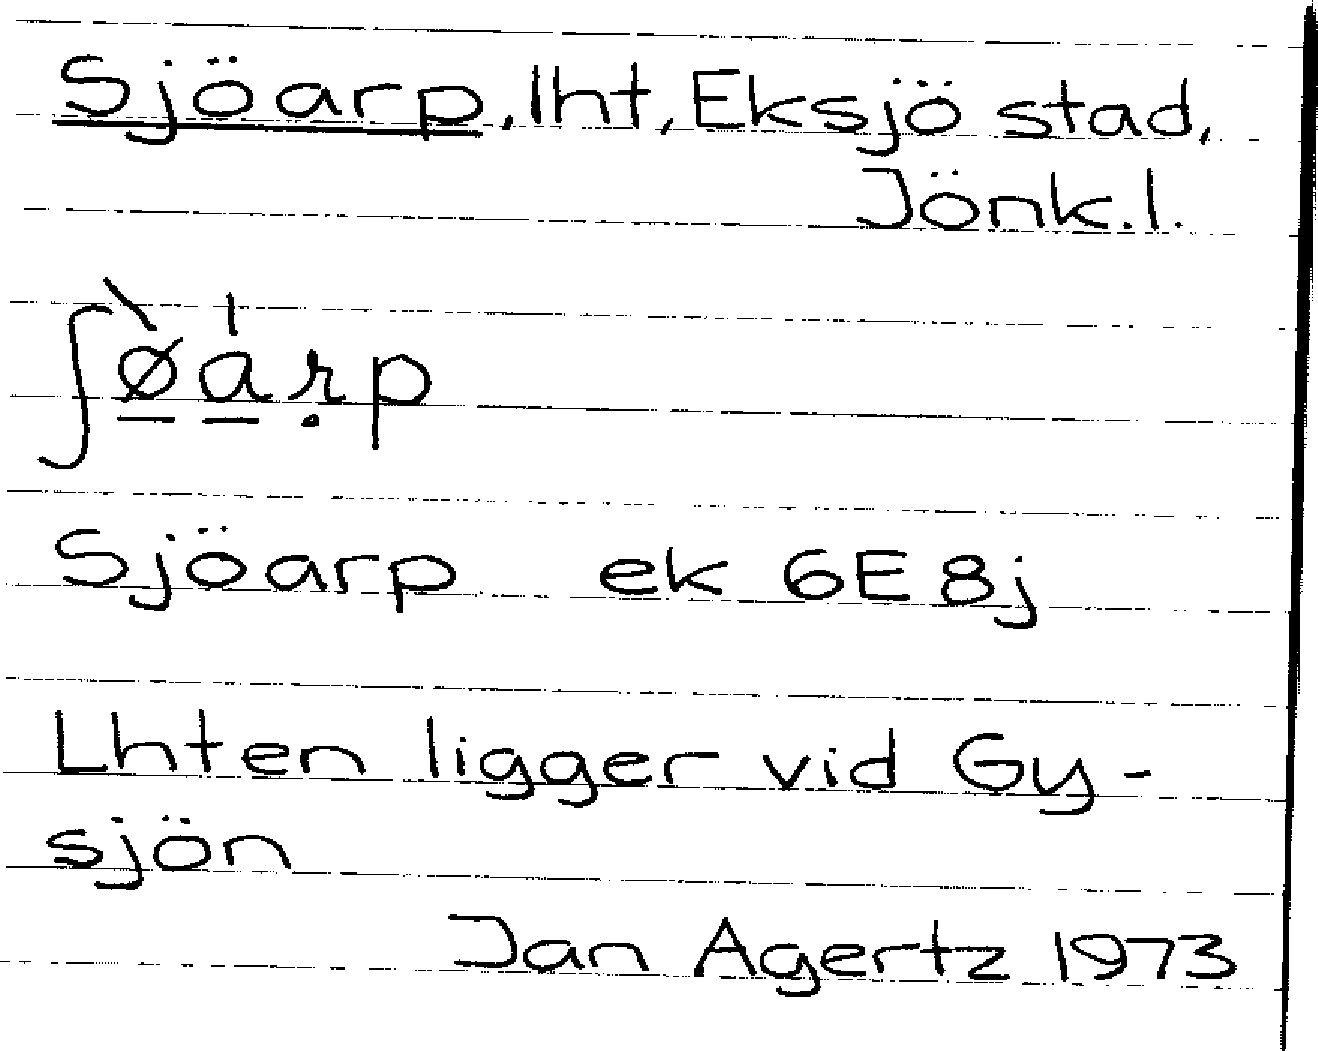 Sjöarp, lht, Eksjö stad,
Jönk.l.
ʃø̱̀a̱̍ṛp
Sjöarp ek 6E8j
Lhten ligger vid Gy-
sjön
Jan Agertz 1973